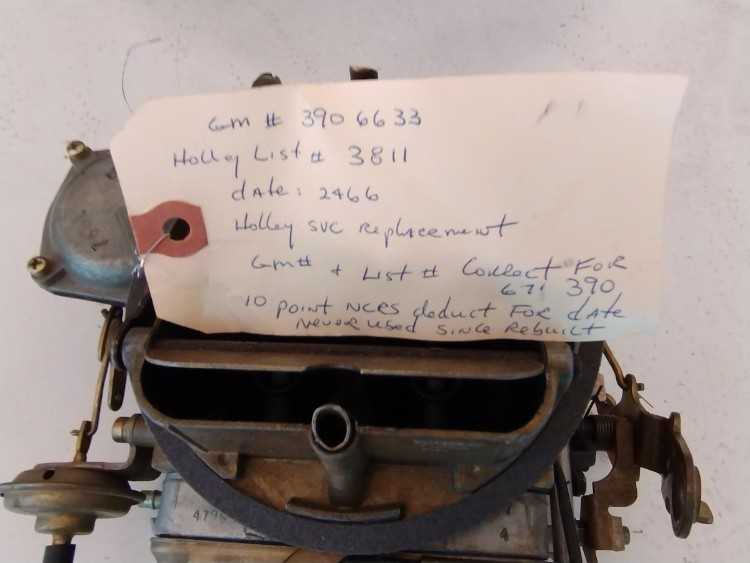 GM # 3906633
Holley List # 3811
dAte: 2466
Holley SVC Replacement
GM# + List # Correct FOR
67' 390
10 point NCRS deduct FOR dAte
Never used since Rebuilt
4